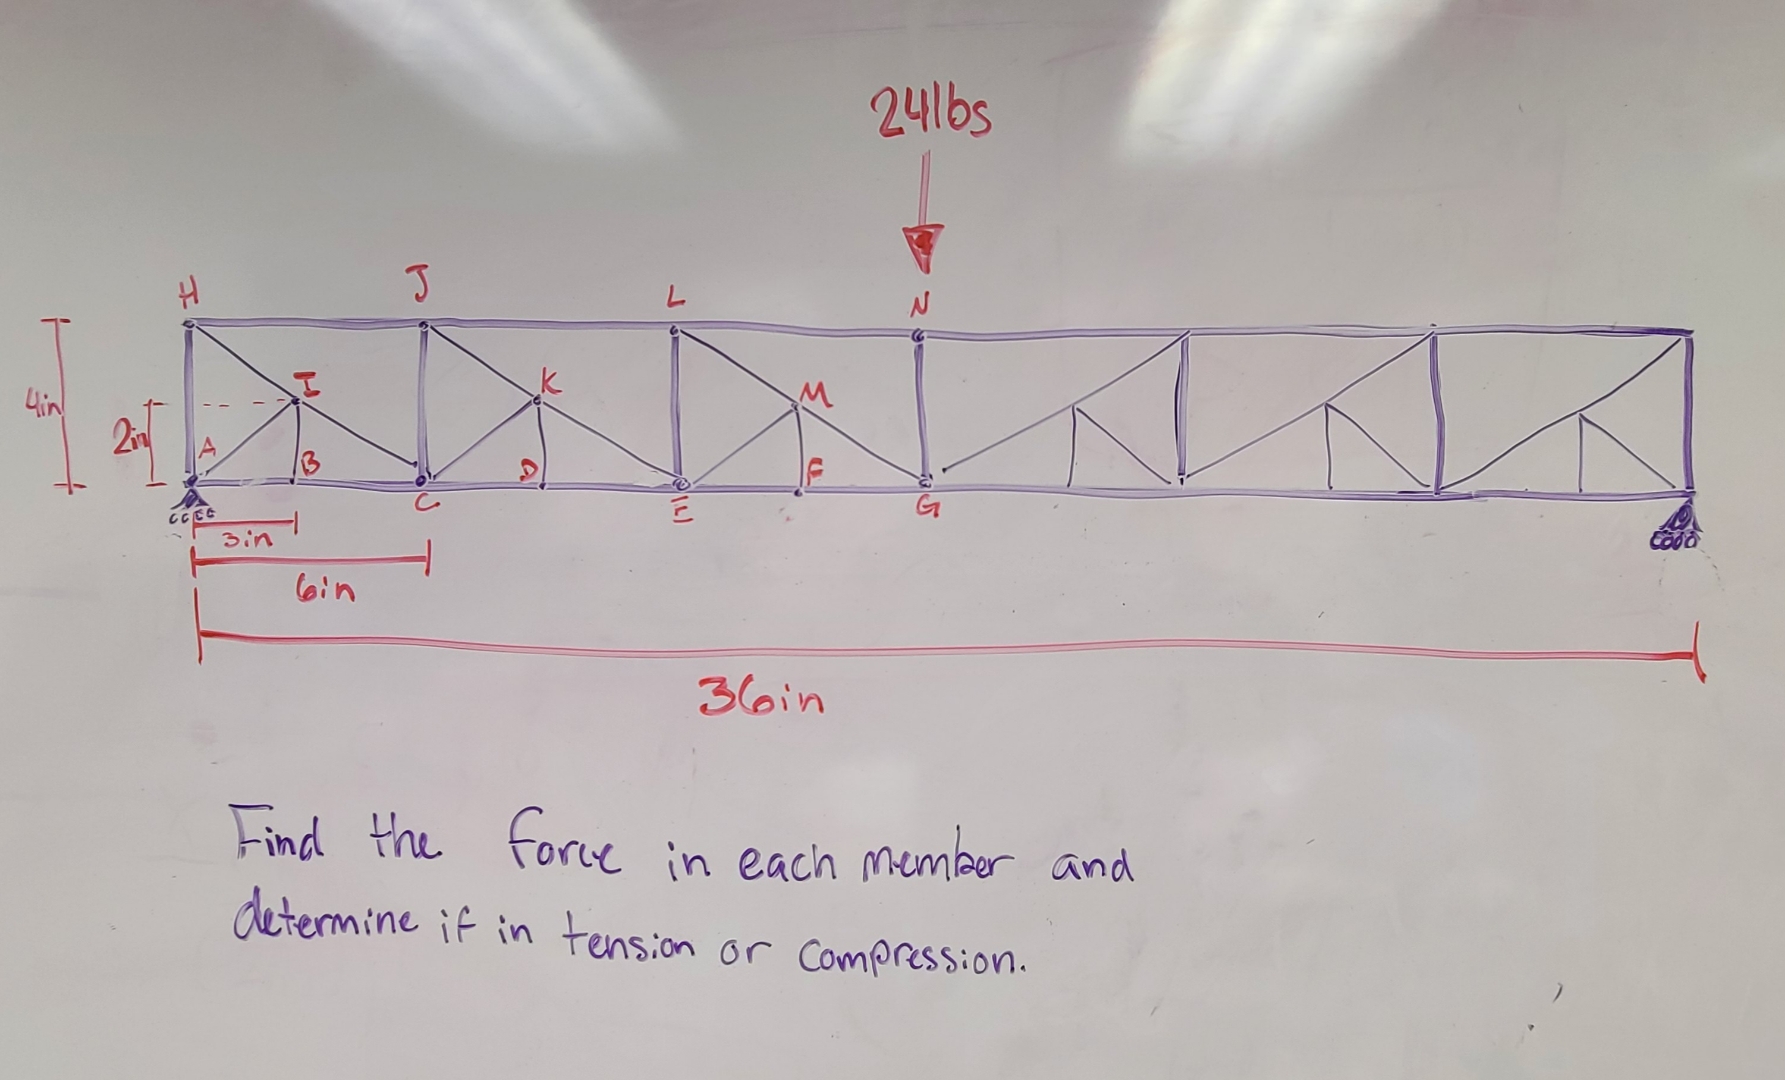 24lbs
H
J
L
N
4in
2in
I
K
M
A
B
C
D
E
F
G
3in
6in
36in
Find the force in each member and
determine if in tension or compression.